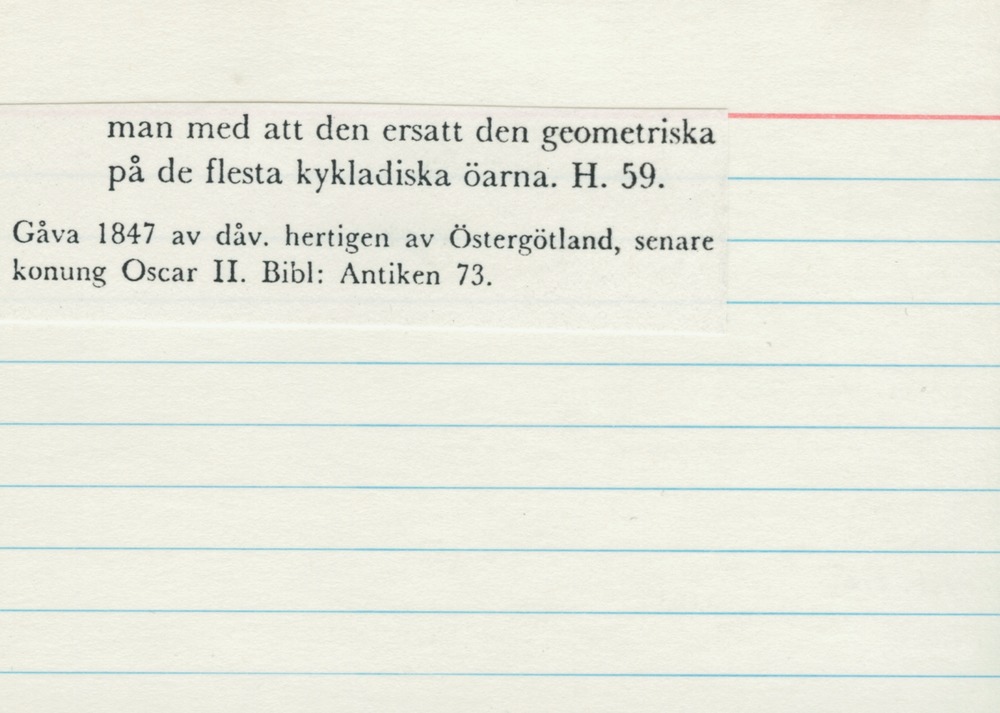 man med att den ersatt den geometriska
på de flesta kykladiska öarna. H. 59.
Gåva 1847 av dåv. hertigen av Östergötland, senare
konung Oscar II. Bibl: Antiken 73.